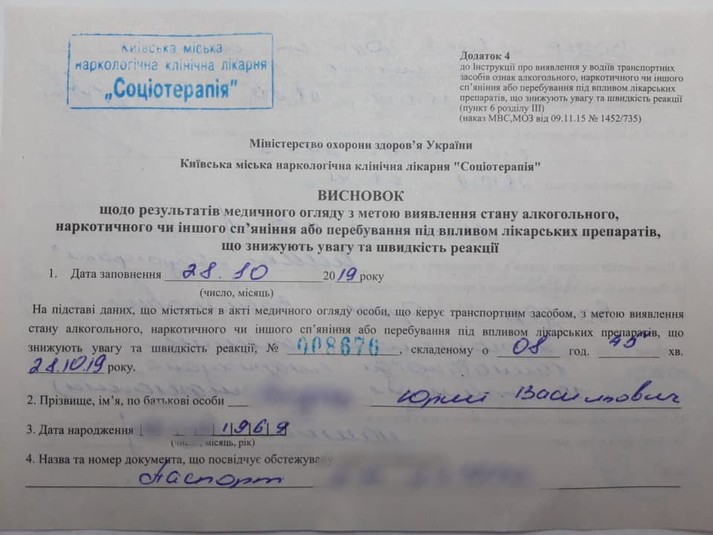 Київська міська
наркологічна клінічна лікарня
„Соціотерапія"
Додаток 4
до Інструкції про виявлення у водіїв транспортних
засобів ознак алкогольного, наркотичного чи іншого
сп’яніння або перебування під впливом лікарських
препаратів, що знижують увагу та швидкість реакції
(пункт 6 розділу III)
(наказ МВС,МОЗ від 09.11.15 № 1452/735)
Міністерство охорони здоров’я України
Київська міська наркологічна клінічна лікарня "Соціотерапія"
ВИСНОВОК
щодо результатів медичного огляду з метою виявлення стану алкогольного,
наркотичного чи іншого сп’яніння або перебування під впливом лікарських препаратів,
що знижують увагу та швидкість реакції
1. Дата заповнення 28.10 2019 року
(число, місяць)
На підставі даних, що містяться в акті медичного огляду особи, що керує транспортним засобом, з метою виявлення
стану алкогольного, наркотичного чи іншого сп’яніння або перебування під впливом лікарських препаратів, що
знижують увагу та швидкість реакції, № 008676, складеному о 08 год. 45 хв.
28.10.19 року.
2. Прізвище, ім’я, по батькові особи Юрій Васильович
3. Дата народження 1969
місяць, рік)
4. Назва та номер документа, що посвідчує
Паспорт